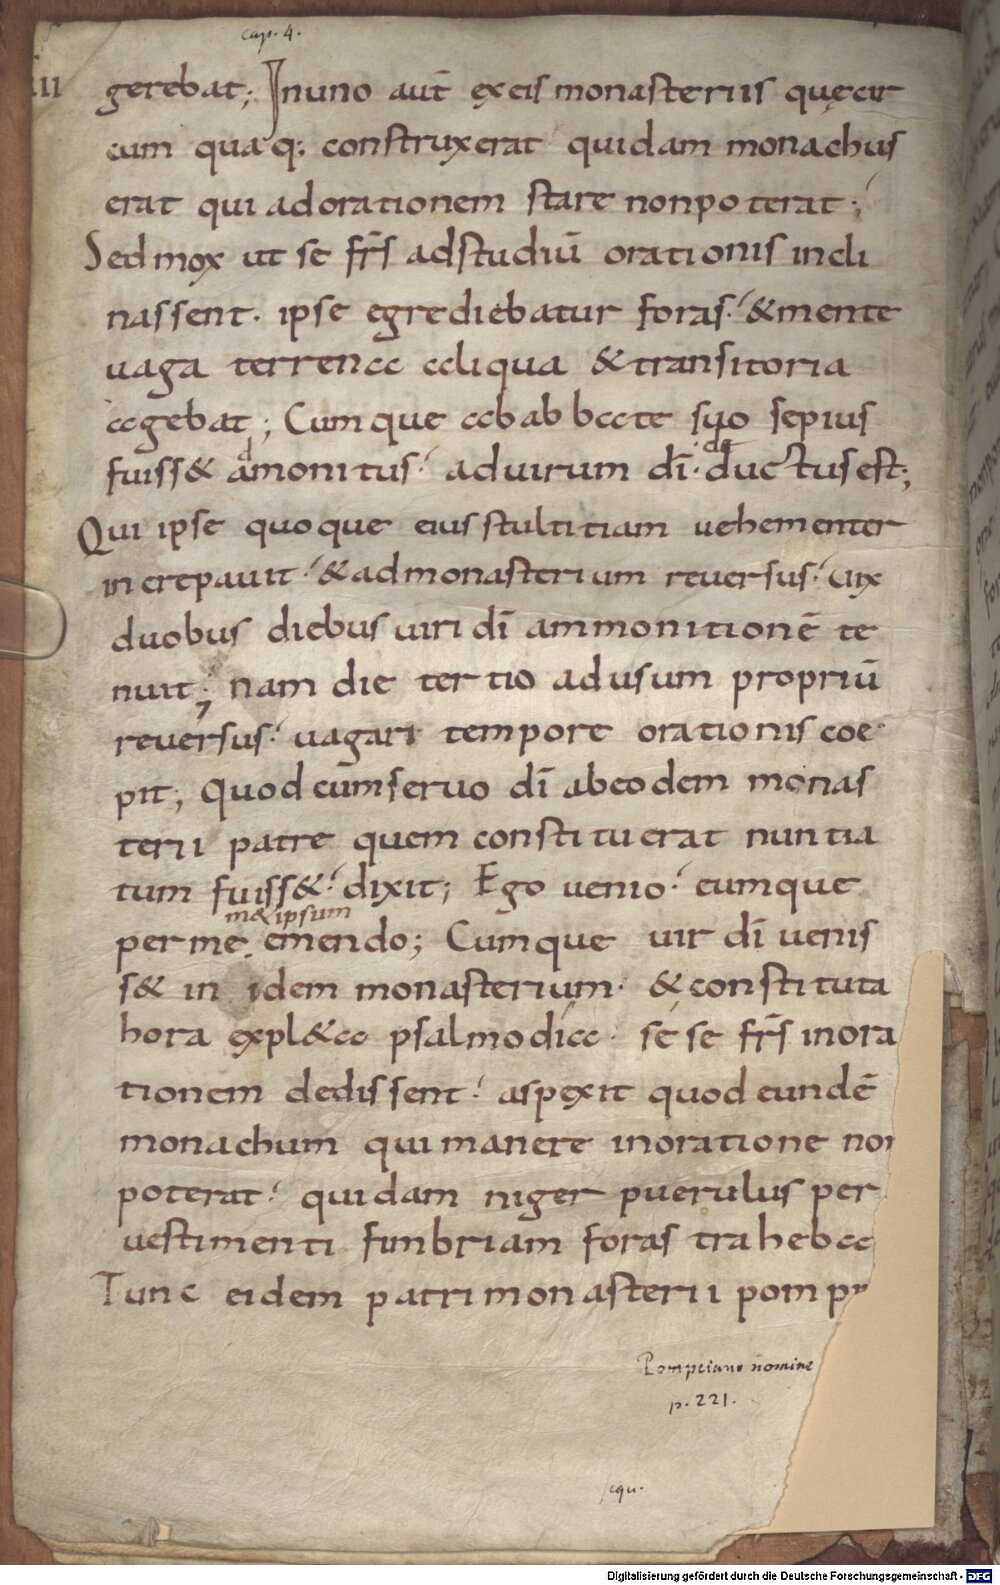 cap. 4.
gerebat; In uno aut̄ ex eis monasteriis quę cir
cum quaq; construxerat quidam monachus
erat qui ad orationem stare non poterat;
Sed mox ut se fr̄s ad studiū orationis incli
nassent. ipse egrediebatur foras. & mente
uaga terrena aliqua & transitoria
agebat; Cumque ab abbate suo sepius
fuiss& admonitus. ad uirum dī. ductus est;
Qui ipse quoque eius stultitiam uehementer
increpauit. & ad monasterium reuersus. uix
duobus diebus uiri dī ammonitionē te
nuit; nam die tertio ad usum propriū
reuersus. uagari tempore orationis coe
pit; Quod cum seruo dī ab eodem monas
terii patre quem constituerat nuntia
tum fuiss&. dixit; Ego uenio. eumque
m& ipsum
per me emendo; Cumque uir dī uenis
s& in idem monasterium. & constituta
hora expl&a psalmodia. sese fr̄s in ora
tionem dedissent. aspexit quod eundē
monachum qui manere in oratione non
poterat. quidam niger puerulus per
uestimenti fimbriam foras traheba
Tunc eidem patri monasterii pomp
Pompeiano nomine
p. 221.
sequ.
Digitalisierung gefördert durch die Deutsche Forschungsgemeinschaft - DFG